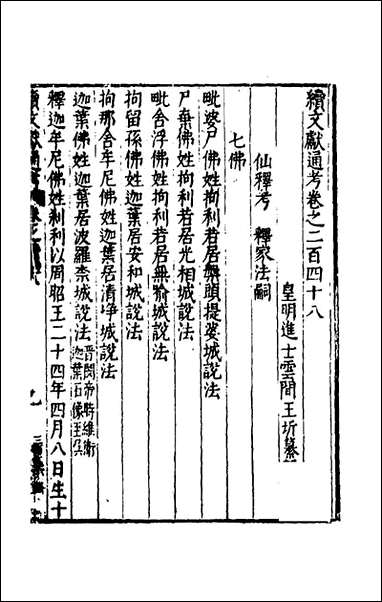 續文獻通考卷之二百四十八
皇明進士雲間王圻纂
仙釋考 釋家法嗣
七佛
毗婆尸佛姓拘利若居盤頭提婆城說法
尸棄佛姓拘利若居光相城說法
毗舍浮佛姓拘利若居無喻城說法
拘留孫佛姓迦葉居安和城說法
拘那舍牟尼佛姓迦葉居清淨城說法
迦葉佛姓迦葉居波羅柰城說法 晉閔帝時維衛迦葉石像至吳
釋迦牟尼佛姓剎利以周昭王二十四年四月八日生十
續文獻通考